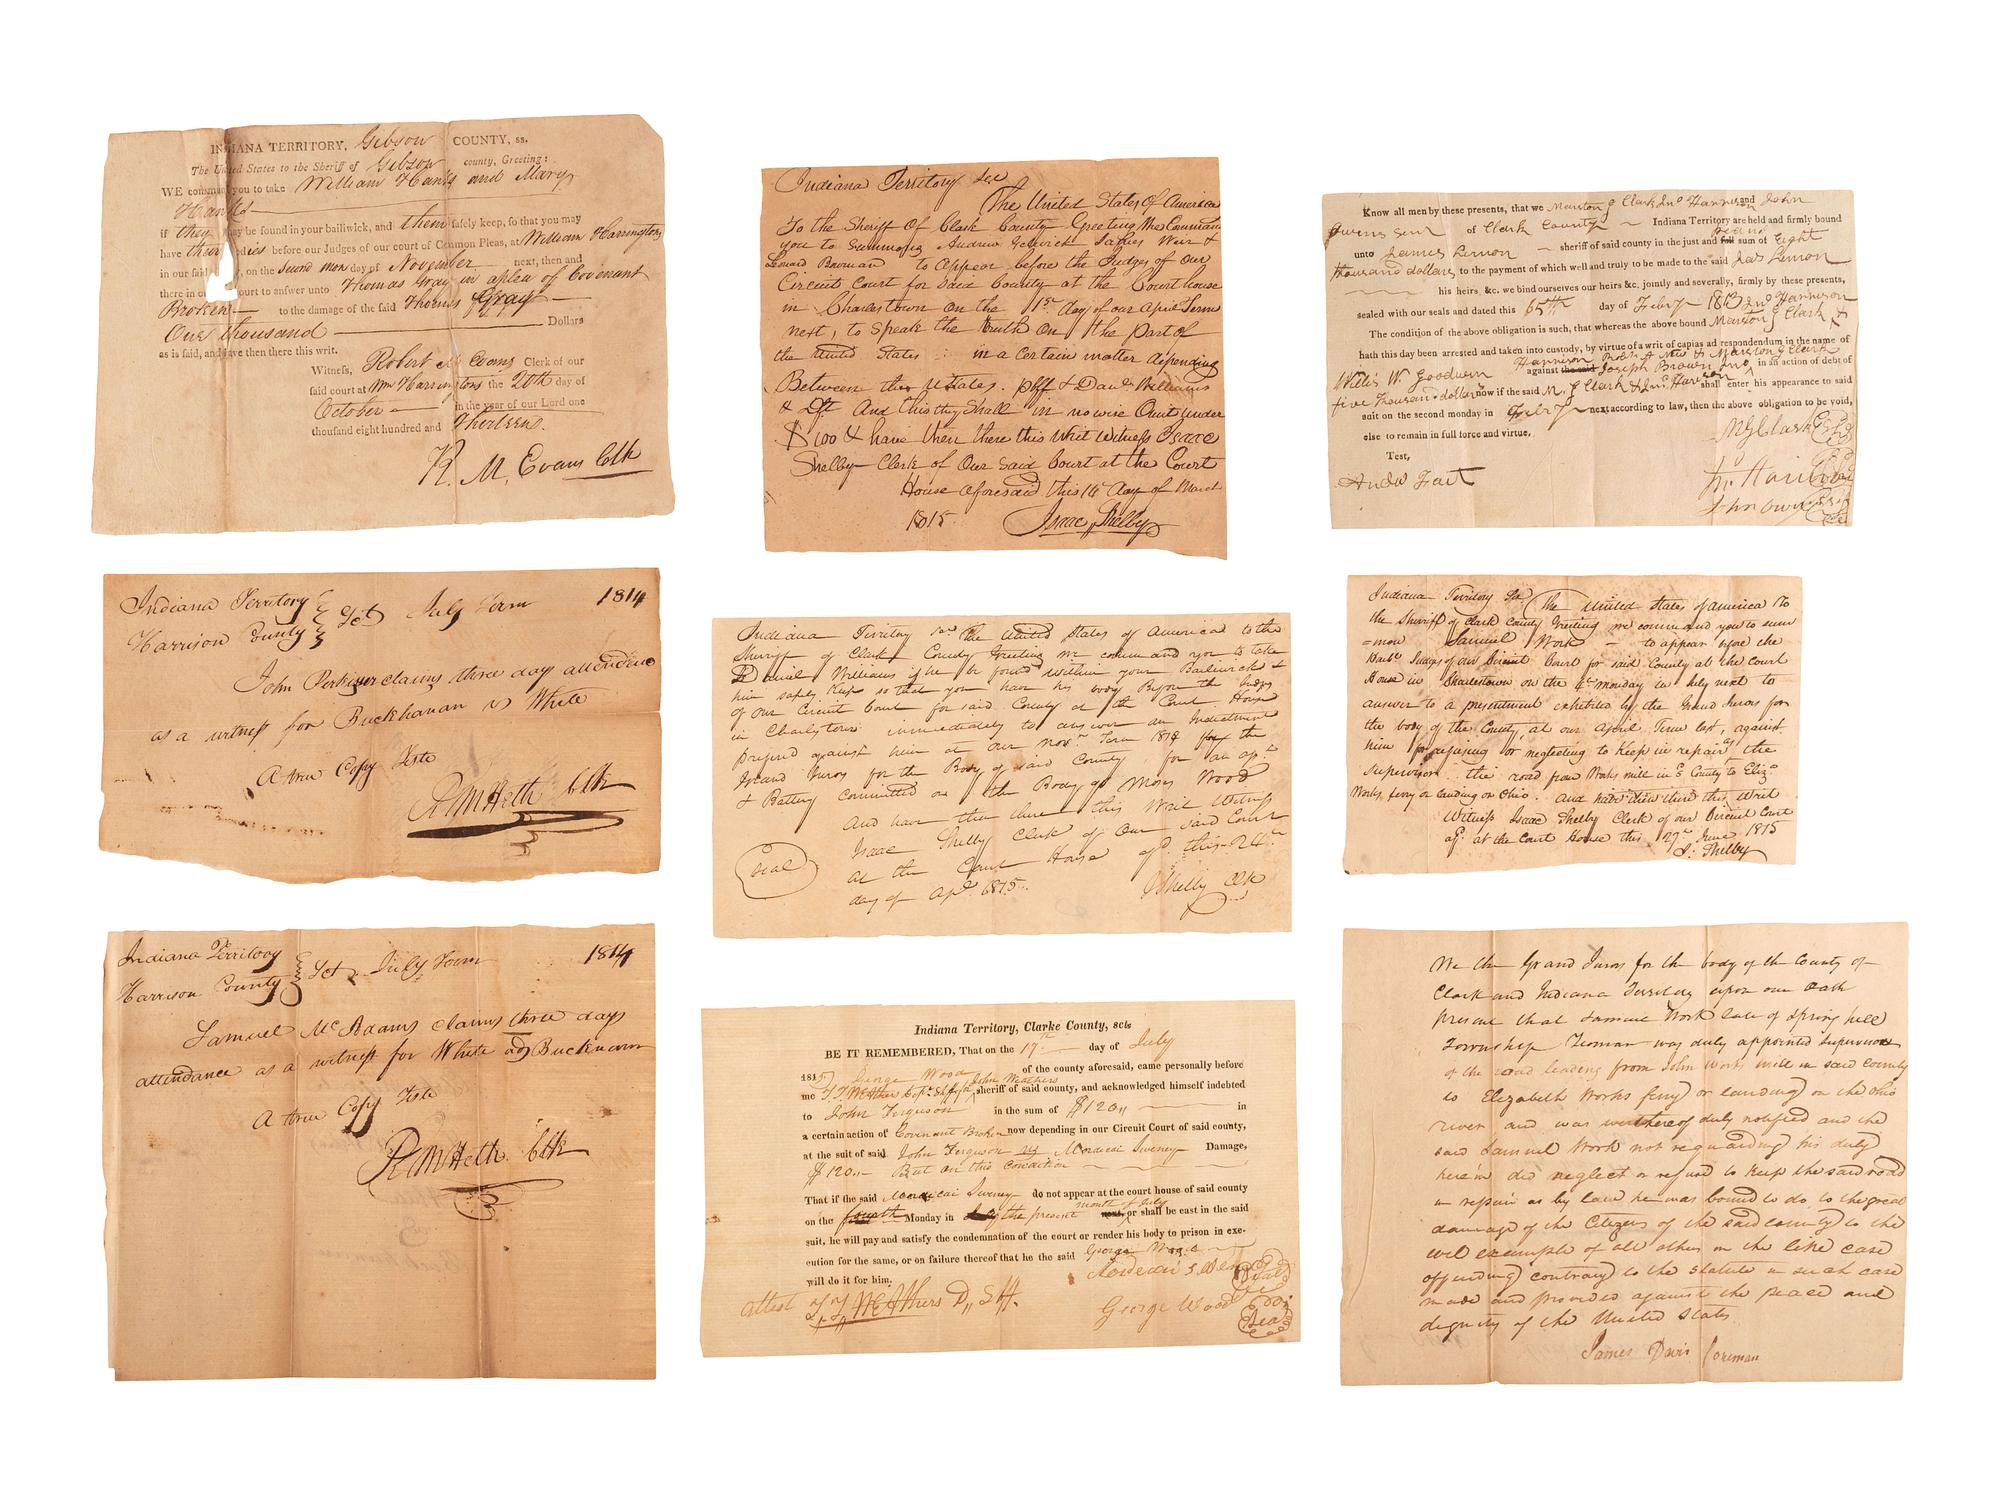 INDIANA TERRITORY, Gibson COUNTY, ss.
The United States to the Sheriff of Gibson county, Greeting:
WE command you to take William Hanks and Mary
Hanks
if they may be found in your bailiwick, and them safely keep, so that you may
have their bodies before our Judges of our court of Common Pleas, at William Harringtons
in our said, on the second mon day of November next, then and
there in our court to answer unto Thomas Gray in a plea of Covenant
Broken to the damage of the said Thomas Gray
One thousand Dollars
as is said, and have then there this writ.
Witness, Robert M Evans Clerk of our
said court at Wm Harringtons the 20th day of
October in the year of our Lord one
thousand eight hundred and thirteen.
R. M. Evans Clk
Indiana Territory
Harrison County Sct July Term 1814
John Perkiser claims three day attendance
as a witness for Buckhanan vs White
A true Copy Teste
R M Heth Clk
Indiana Territory
Harrison County Sct July Term 1814
Samuel McAdams claims three days
attendance as a witness for White ads Buckmann
A true Copy Teste
R M Heth Clk
Indiana Territory Sct
The United States Of America
To the Sheriff Of Clark County Greeting We Command
you to Summons Andrew Gelwick James Weir &
Leonard Bowman to appear before the Judges of Our
Circuit Court for said County at the Court house
in Charlestown on the 1st day of our April Term
next, to Speak the truth on the part of
the United States in a certain matter depending
Between the U States. plff & Danl Williams
& Dft And this they Shall in no wise Omit under
$100 & have then there this Writ Witness Isaac
Shelby Clerk of Our Said Court at the Court
House aforesaid this 14 day of March
1815. Isaac Shelby
Indiana Territory sct The United States of America to the
Sherriff of Clark County Greeting We command you to take
Daniel Williams if he be found within your Bailiwick &
him safely Keep so that you have his body Before the Judges
of our Circuit Court for said County at the Court House
in Charlestown immediately to answer an Indictment
prefered against him at our Novr Term 1814 by the
Grand Jurors for the Body of said County for an ast
& Battery Committed on the Body of Moses Wood
And have then there this Writ Witness
Isaac Shelby Clerk of Our said Court
at the Court House afd. this 24th
day of Apl 1815.
Seal
I Shelby Clk
Indiana Territory, Clarke County, sct.
BE IT REMEMBERED, That on the 19th day of July
1815 George Wood of the county aforesaid, came personally before
me J. J. McAthers Dpt. Shff for John Weathers sheriff of said county, and acknowledged himself indebted
to John Ferguson in the sum of $120,, in
a certain action of Covenant Broken now depending in our Circuit Court of said county,
at the suit of said John Ferguson vs Mordecai Sweney Damage,
$120,, But on this Condition
That if the said Mordecai Sweney do not appear at the court house of said county
on the fourth Monday in the present month of July next, or shall be cast in the said
suit, he will pay and satisfy the condemnation of the court or render his body to prison in exe-
cution for the same, or on failure thereof that he the said George Wood
will do it for him.
Mordecai Sweney Seal
attest J J McAthers D,, Shff.
George Wood Seal
Know all men by these presents, that we Marston G Clark Jno Harrison and John
Owens Senr of Clark County Indiana Territory are held and firmly bound
unto James Lemon sheriff of said county in the just and full sum of Eight
thousand dollars to the payment of which well and truly to be made to the said Jas Lemon
his heirs, &c. we bind ourselves our heirs &c. jointly and severally, firmly by these presents,
sealed with our seals and dated this day of Feby 1813
The condition of the above obligation is such, that whereas the above bound Jno Harrison Marston G Clark &
hath this day been arrested and taken into custody, by virtue of a writ of capias ad respondendum in the name of
Willis W. Goodwin against the said Joseph Brown Jno Harrison & Marston G Clark in an action of debt of
five thousand dollars now if the said M. G Clark & Jno Harrison shall enter his appearance to said
suit on the second monday in Feby next according to law, then the above obligation to be void,
else to remain in full force and virtue.
Test,
M G Clark Seal
Jno Harrison Seal
John Owens Seal
Indiana Territory Sct. The United States of America To
the Sherriff of Clark County Greeting we command you to sum
=mon Samuel Work to appear before the
Honbl. Judges of our Circuit Court for said County at the Court
House in Charlestown on the 4th Monday in July next to
answer to a presentment exhibited by the Grand Jurors for
the body of the County, at our April Term last, against
him for refusing or neglecting to keep in repair as
supervisor the road from Works mill in sd County to Eliza
Works ferry or landing on Ohio. And have then there this Writ
Witness Isaac Shelby Clerk of our Circuit Court
afd. at the Court House this 27th June 1815
I. Shelby
We the Grand Jurors for the body of the County of
Clark and Indiana Territory upon our Oath
present that Samuel Work late of Spring hill
Township Yeoman was duly appointed Supervisor
of the road leading from John Works mill in said County
to Elizabeth Works ferry or landing on the Ohio
river and was thereof duly notified and the
said Samuel Work not reguarding his duty
herein did neglect or refuse to keep the said road
in repair as by law he was bound to do to the great
damage of the Citizens of the said county to the
evil example of all others in the like case
offending contrary to the statute in such case
made and provided against the peace and
dignity of the United States
James Davis foreman